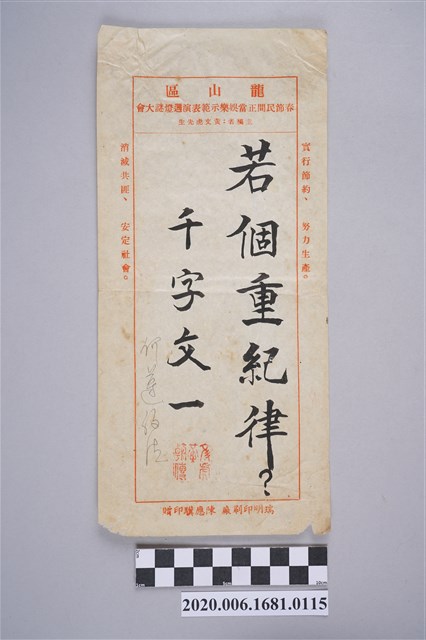 龍山區
春節民間正當娛樂示範表演週燈謎大會
主編者:黃文虎先生
實行節約、努力生產。
若個重紀律?
千字文一
何遵約法
消滅共匪、安定社會。
明印刷廠 陳應印贈
2020.006.1681.0115